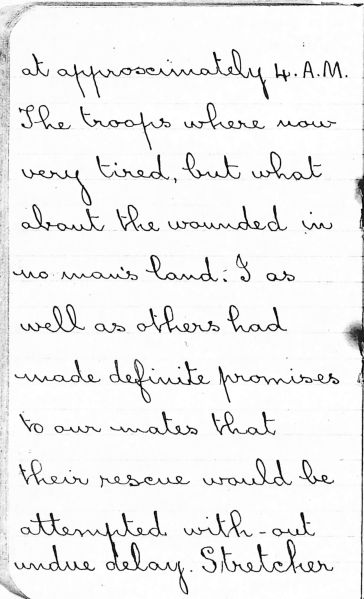 at approximately 4. A.M.
The troops where now
very tired, but what
about the wounded in
no man's land. I as
well as others had
made definite promises
to our mates that
their rescue would be
attempted with-out
undue delay. Stretcher